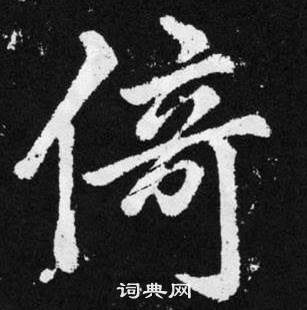 倚
词典网